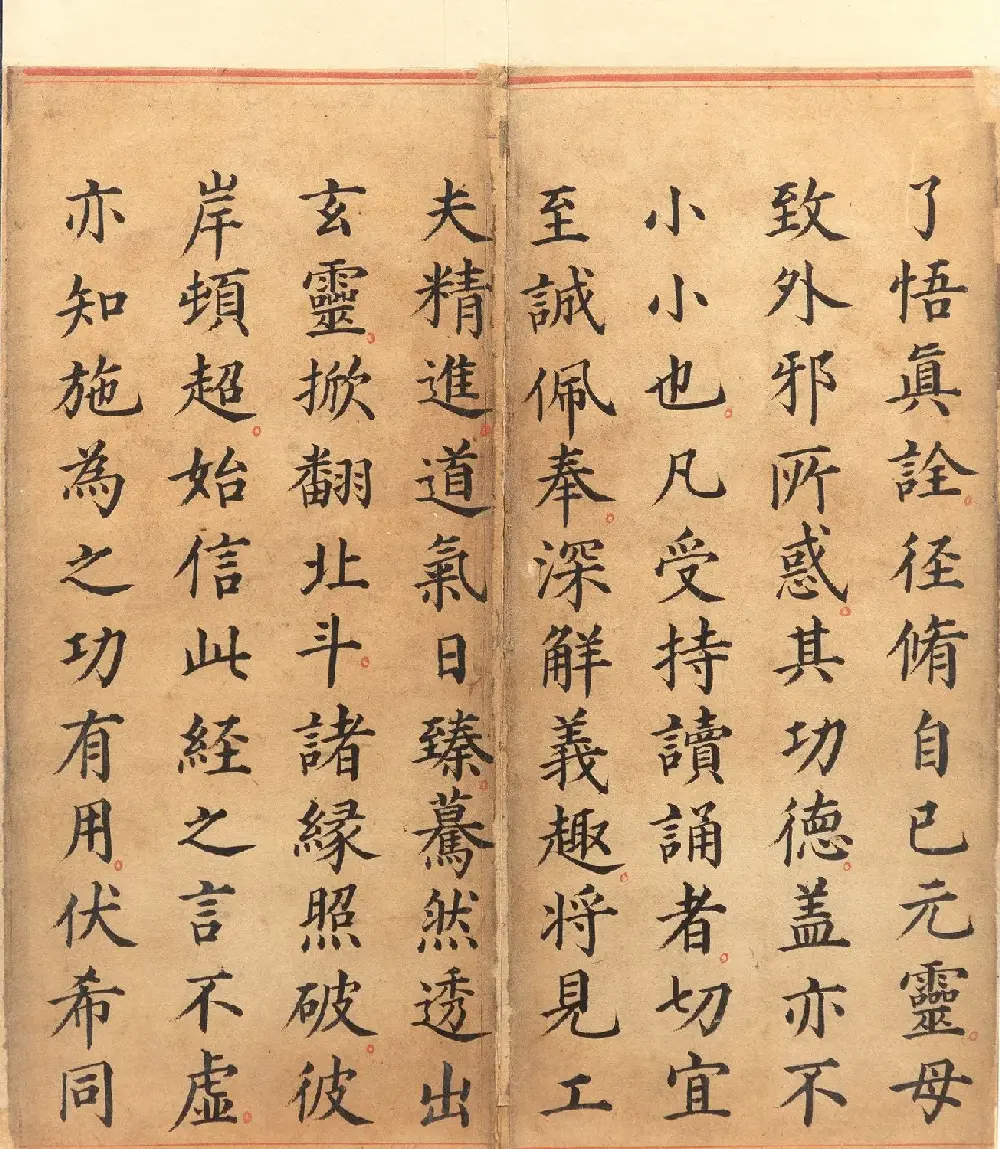 了悟眞詮径脩自已元靈母
致外邪所惑其功德盖亦不
小小也凡受持讀誦者切宜
至誠佩奉深解義趣将見工
夫精進道氣日臻驀然透出
玄靈掀翻北斗諸縁照破彼
岸頓超始信此経之言不虚
亦知施為之功有用伏希同